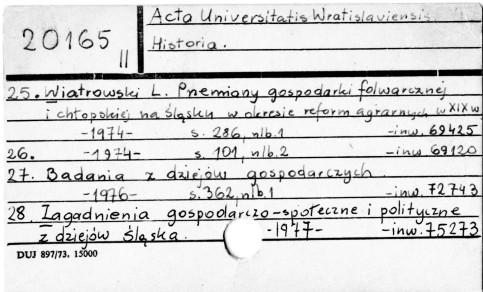 20165 II
Acta Universitatis Wratislaviensis.
Historia.
25. Wiatrowski L. Przemiany gospodarki folwarcznej
i chłopskiej na Śląsku w okresie reform agrarnych w XIX w.
-1974- s. 286, nlb.1 -inw. 69425
26. -1974- s. 101, nlb.2 -inw. 69120
27. Badania z dziejów gospodarczych.
-1976- s. 362, nlb.1 -inw. 72743
28. Zagadnienia gospodarczo-społeczne i polityczne
z dziejów Śląska. -1977- -inw. 75273
DUJ 897/73. 15000